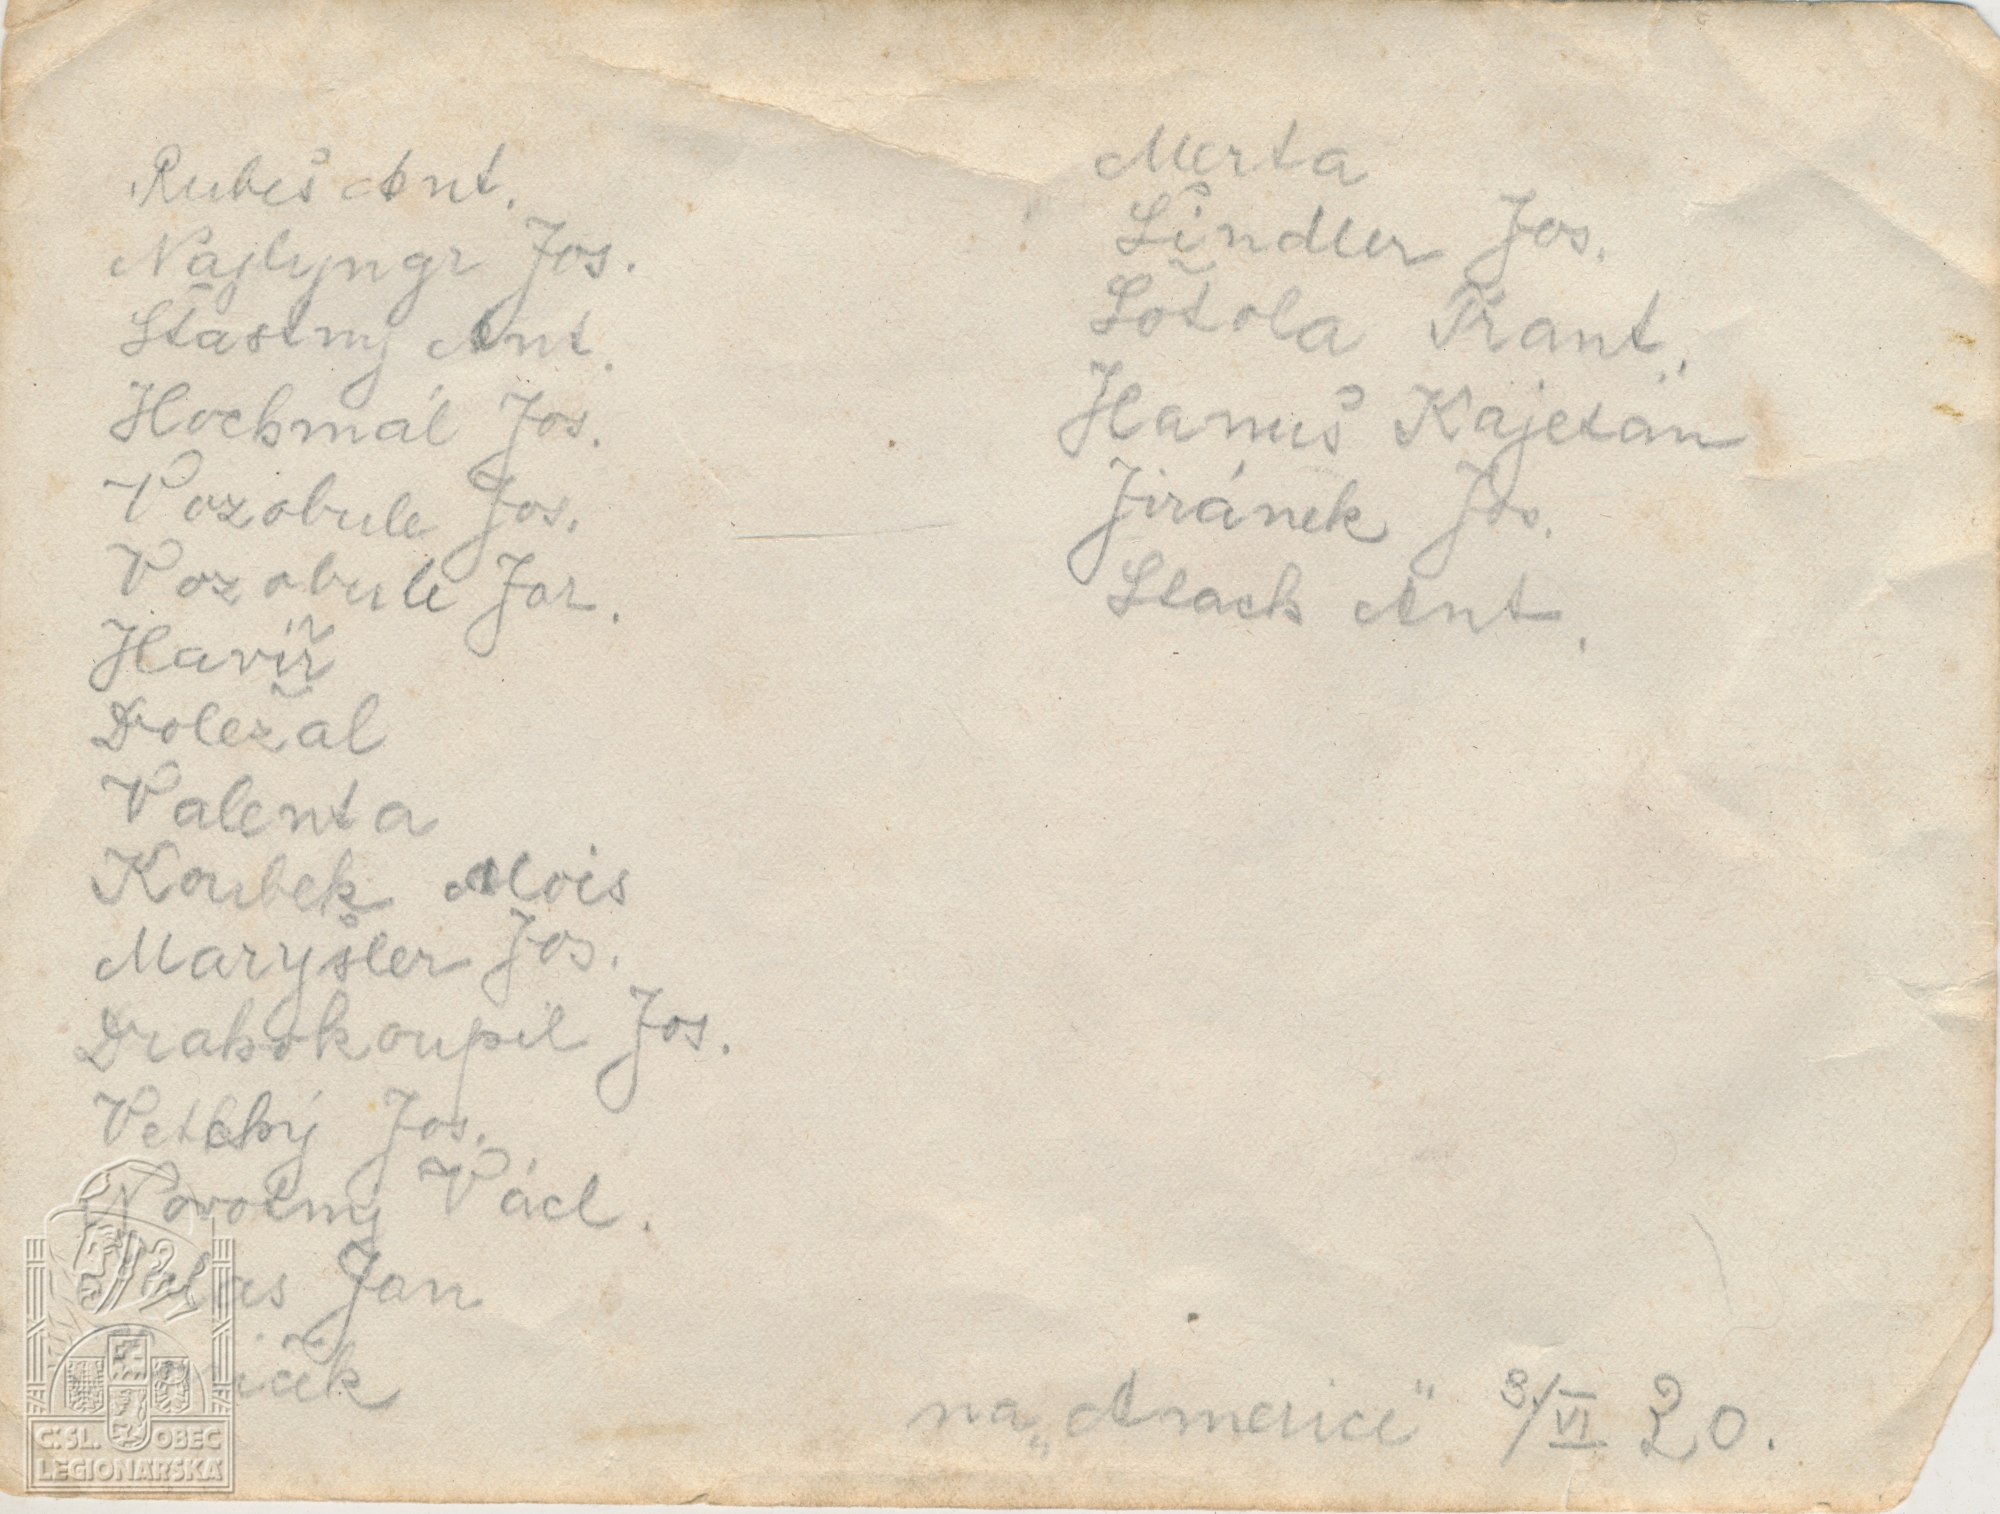 Rubeš Ant.
Najlyngr Jos.
Šťastný Ant.
Hochmál Jos.
Vozobule Jos.
Vozobule Jar.
Havíř
Doležal
Valenta
Koubek Alois
Maryšler Jos.
Drahokoupil Jos.
Vetchý Jos.
Novotný Václ.
Jan
Merta
Šindler Jos.
Šotola Frant.
Hanuš Kajetán
Jiránek Jos.
Slach Ant.
na „Americe" 3/VI 20.
Č. SL. OBEC
LEGIONÁŘSKÁ